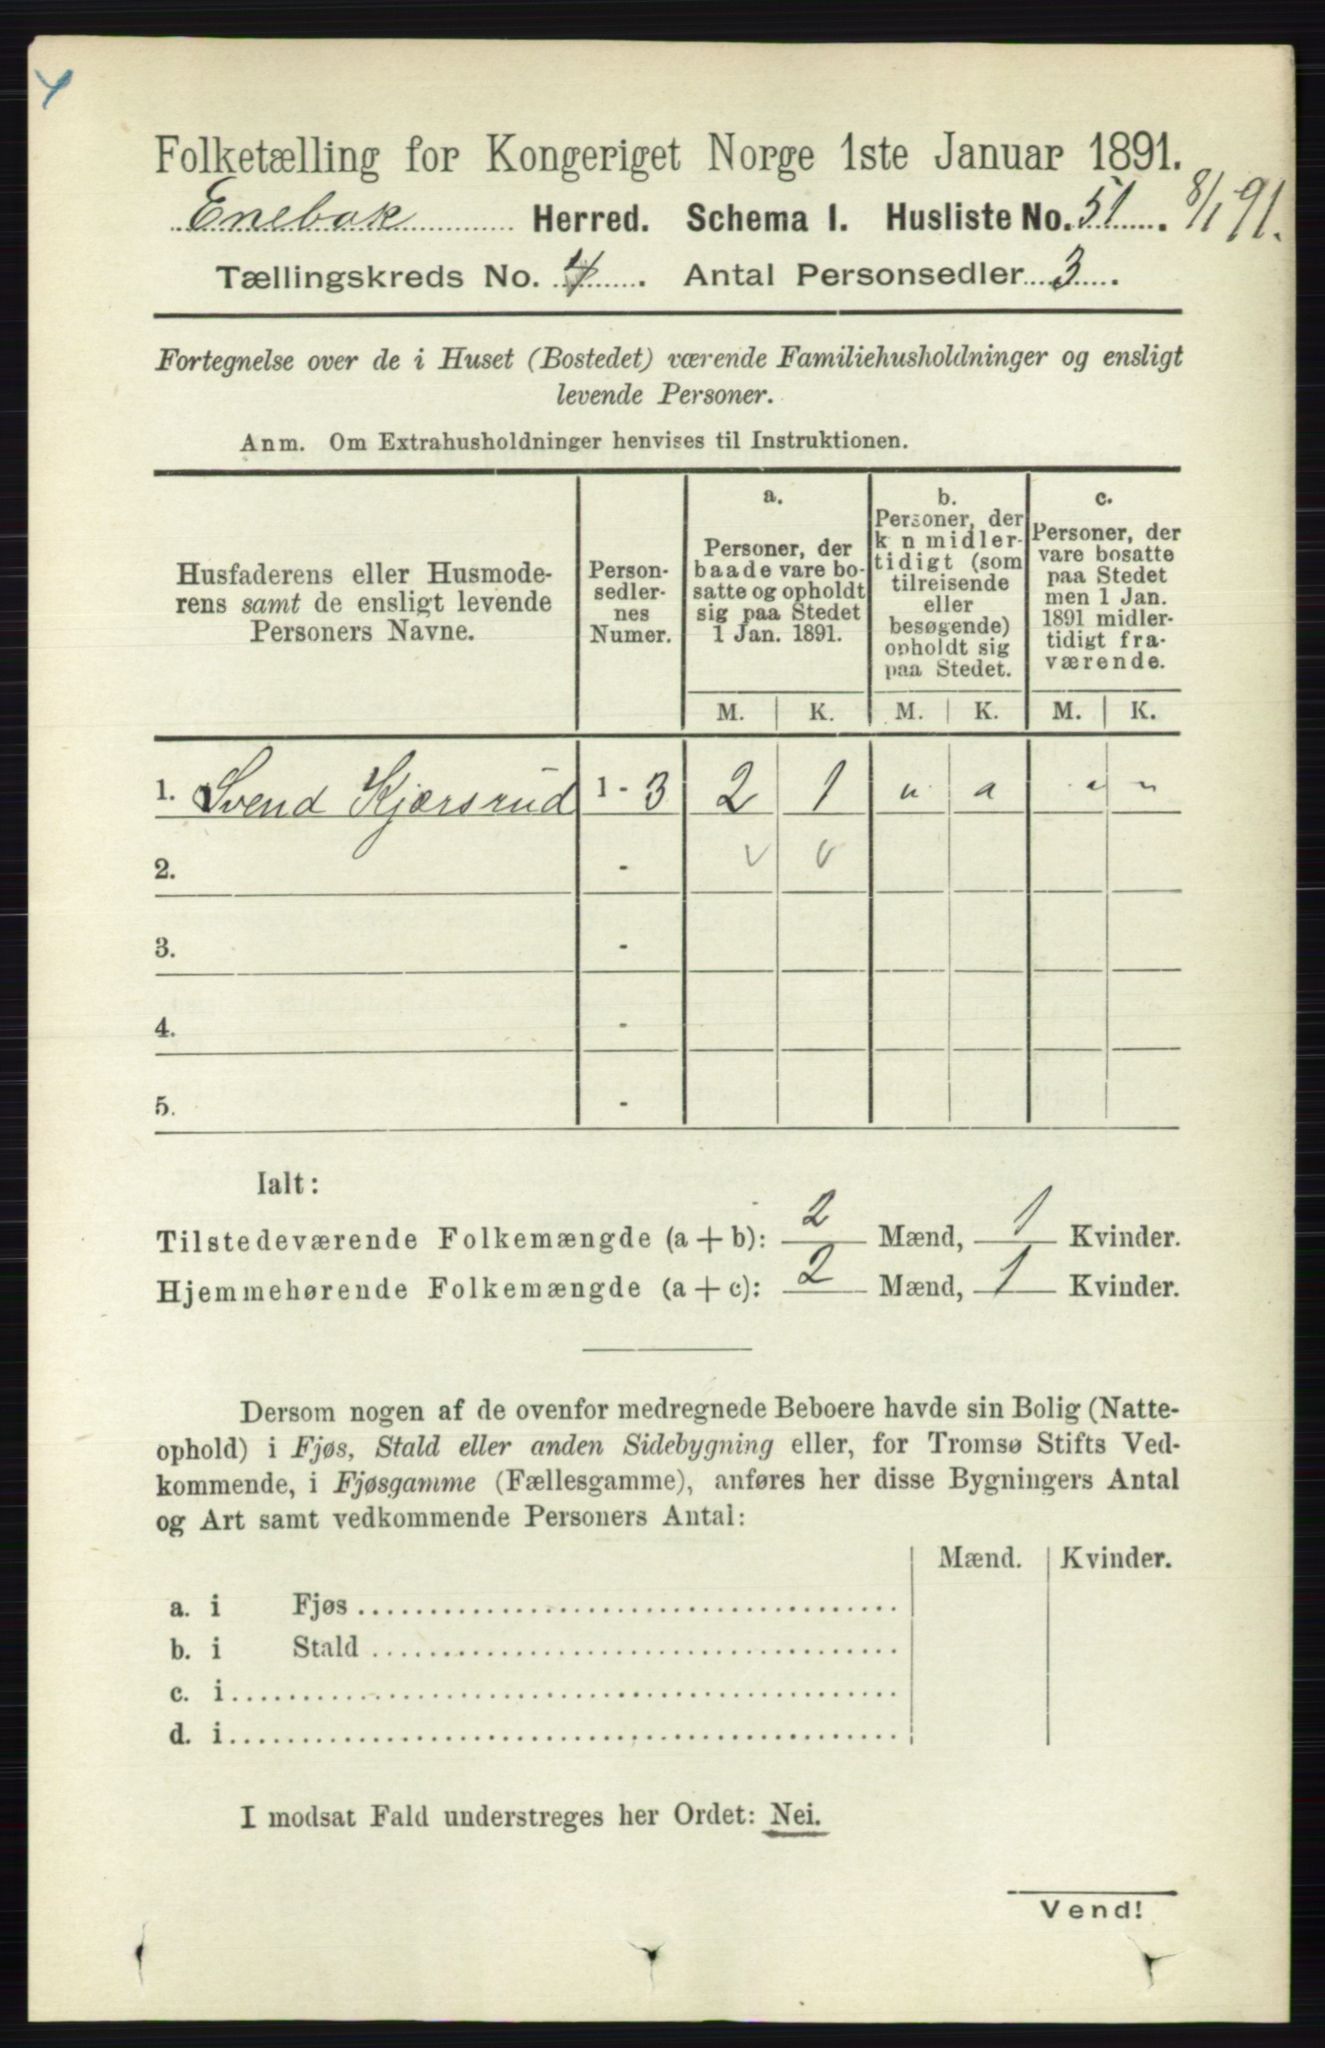 4
Folketælling for Kongeriget Norge 1ste Januar 1891.
Enebak Herred. Schema 1. Husliste No. 51. 8/1 91.
Tællingskreds No. 4. Antal Personsedler 3.
Fortegnelse over de i Huset (Bostedet) værende Familiehusholdninger og ensligt
levende Personer.
Anm. Om Extrahusholdninger henvises til Instruktionen.
Husfaderens eller Husmode-
rens samt de ensligt levende
Personers Navne.
Person-
sedler-
nes
Numer.
a.
Personer, der
baade vare bo-
satte og opholdt
sig paa Stedet
1 Jan. 1891.
b.
Personer, der
k n midler-
tidigt (som
tilreisende
eller
besøgende)
opholdt sig
paa Stedet.
c.
Personer, der
vare bosatte
paa Stedet
men 1 Jan.
1891 midler-
tidigt fra-
værende.
M. K. M. K. M. K.
1. Svend Kjærsrud 1 - 3 2 1 " " " "
2. - v v
3. -
4. -
5. -
Ialt:
Tilstedeværende Folkemængde (a + b): 2 Mænd, 1 Kvinder.
Hjemmehørende Folkemængde (a + c): 2 Mænd, 1 Kvinder.
Dersom nogen af de ovenfor medregnede Beboere havde sin Bolig (Natte-
ophold) i Fjøs, Stald eller anden Sidebygning eller, for Tromsø Stifts Ved-
kommende, i Fjøsgamme (Fællesgamme), anføres her disse Bygningers Antal
og Art samt vedkommende Personers Antal:
Mænd. Kvinder.
a. i Fjøs
b. i Stald
c. i
d. i
I modsat Fald understreges her Ordet: Nei.
Vend!